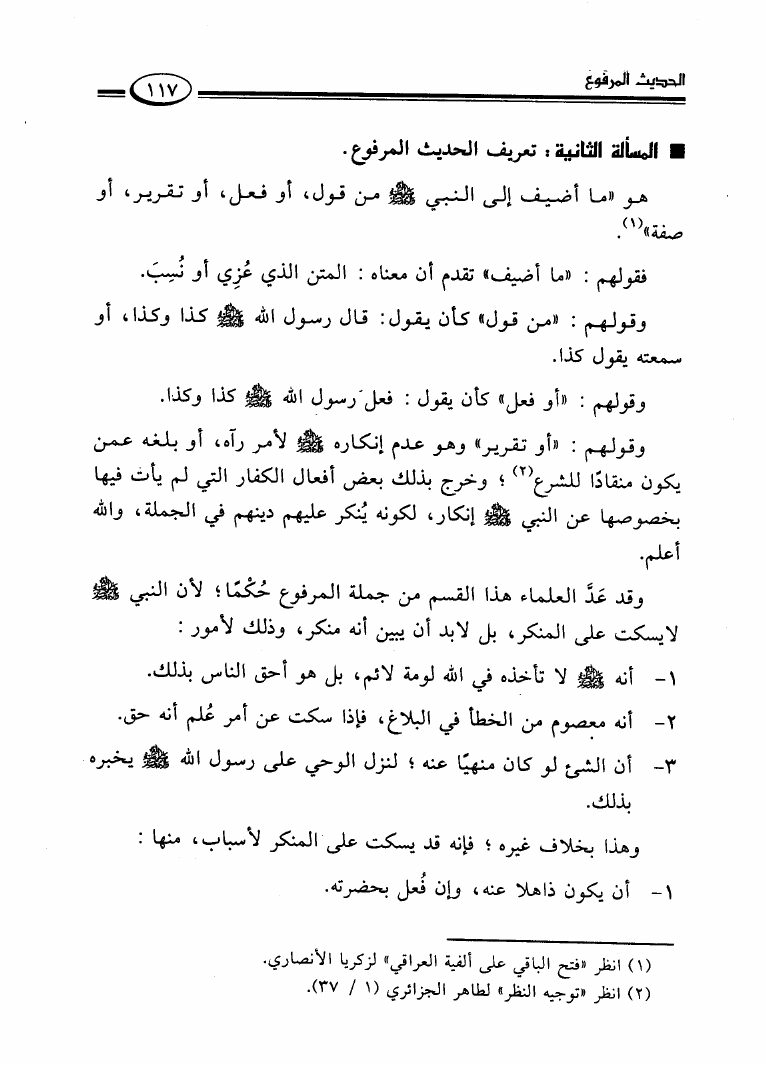 الحديث المرفوع
١١٧
■ المسألة الثانية : تعريف الحديث المرفوع.
هو «ما أضيف إلى النبي ﷺ من قول، أو فعل، أو تقرير، أو
صفة»(١).
فقولهم : «ما أضيف» تقدم أن معناه : المتن الذي عُزِي أو نُسِبَ.
وقولهم : «من قول» كأن يقول: قال رسول الله ﷺ كذا وكذا، أو
سمعته يقول كذا.
وقولهم : «أو فعل» كأن يقول : فعل رسول الله ﷺ كذا وكذا.
وقولهم : «أو تقرير» وهو عدم إنكاره ﷺ لأمر رآه، أو بلغه عمن
يكون منقادًا للشرع(٢) ؛ وخرج بذلك بعض أفعال الكفار التي لم يأت فيها
بخصوصها عن النبي ﷺ إنكار، لكونه يُنكر عليهم دينهم في الجملة، والله
أعلم.
وقد عَدَّ العلماء هذا القسم من جملة المرفوع حُكْمًا؛ لأن النبي ﷺ
لايسكت على المنكر، بل لابد أن يبين أنه منكر، وذلك لأمور :
١- أنه ﷺ لا تأخذه في الله لومة لائم، بل هو أحق الناس بذلك.
٢- أنه معصوم من الخطأ في البلاغ، فإذا سكت عن أمر عُلم أنه حق.
٣- أن الشئ لو كان منهيًا عنه ؛ لنزل الوحي على رسول الله ﷺ يخبره
بذلك.
وهذا بخلاف غيره ؛ فإنه قد يسكت على المنكر لأسباب، منها :
١- أن يكون ذاهلا عنه، وإن فُعل بحضرته.
(١) انظر «فتح الباقي على ألفية العراقي» لزكريا الأنصاري.
(٢) انظر «توجيه النظر» لطاهر الجزائري (١ / ٣٧).